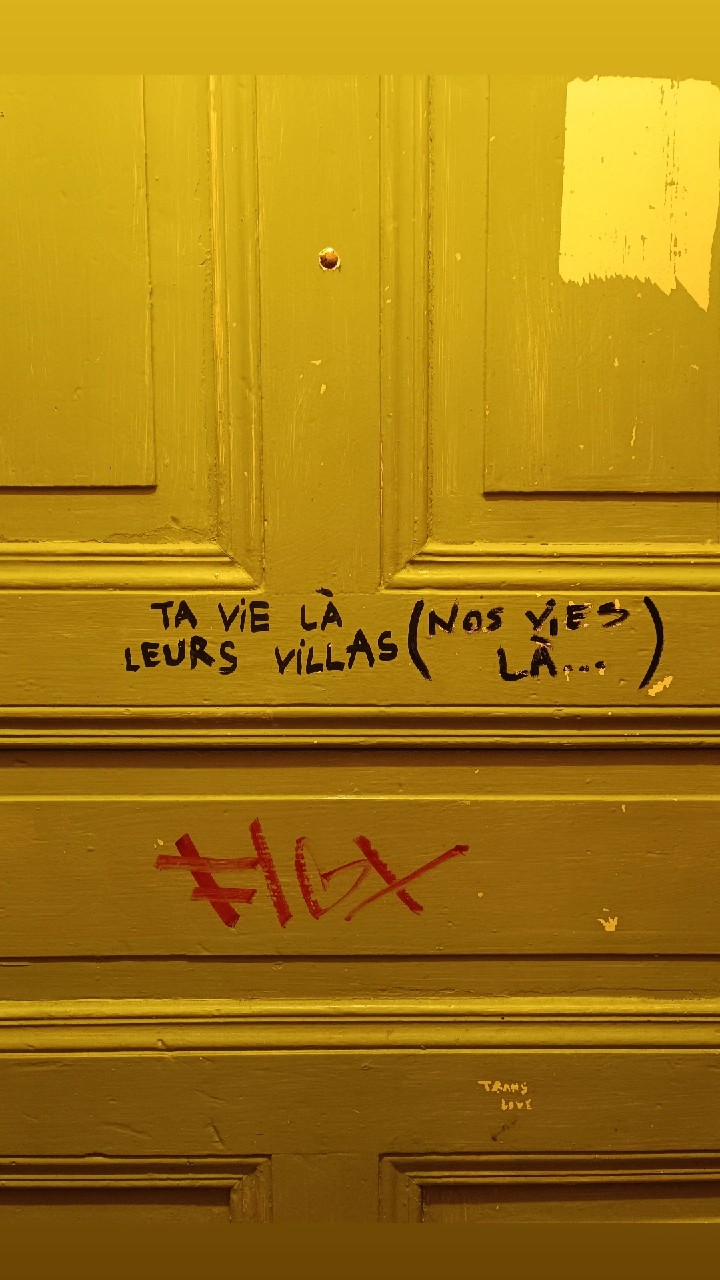 TA ViE LÀ
LEURS ViLLAS
(NOS ViES
LÀ...)
HGX
TRANS
LOVE